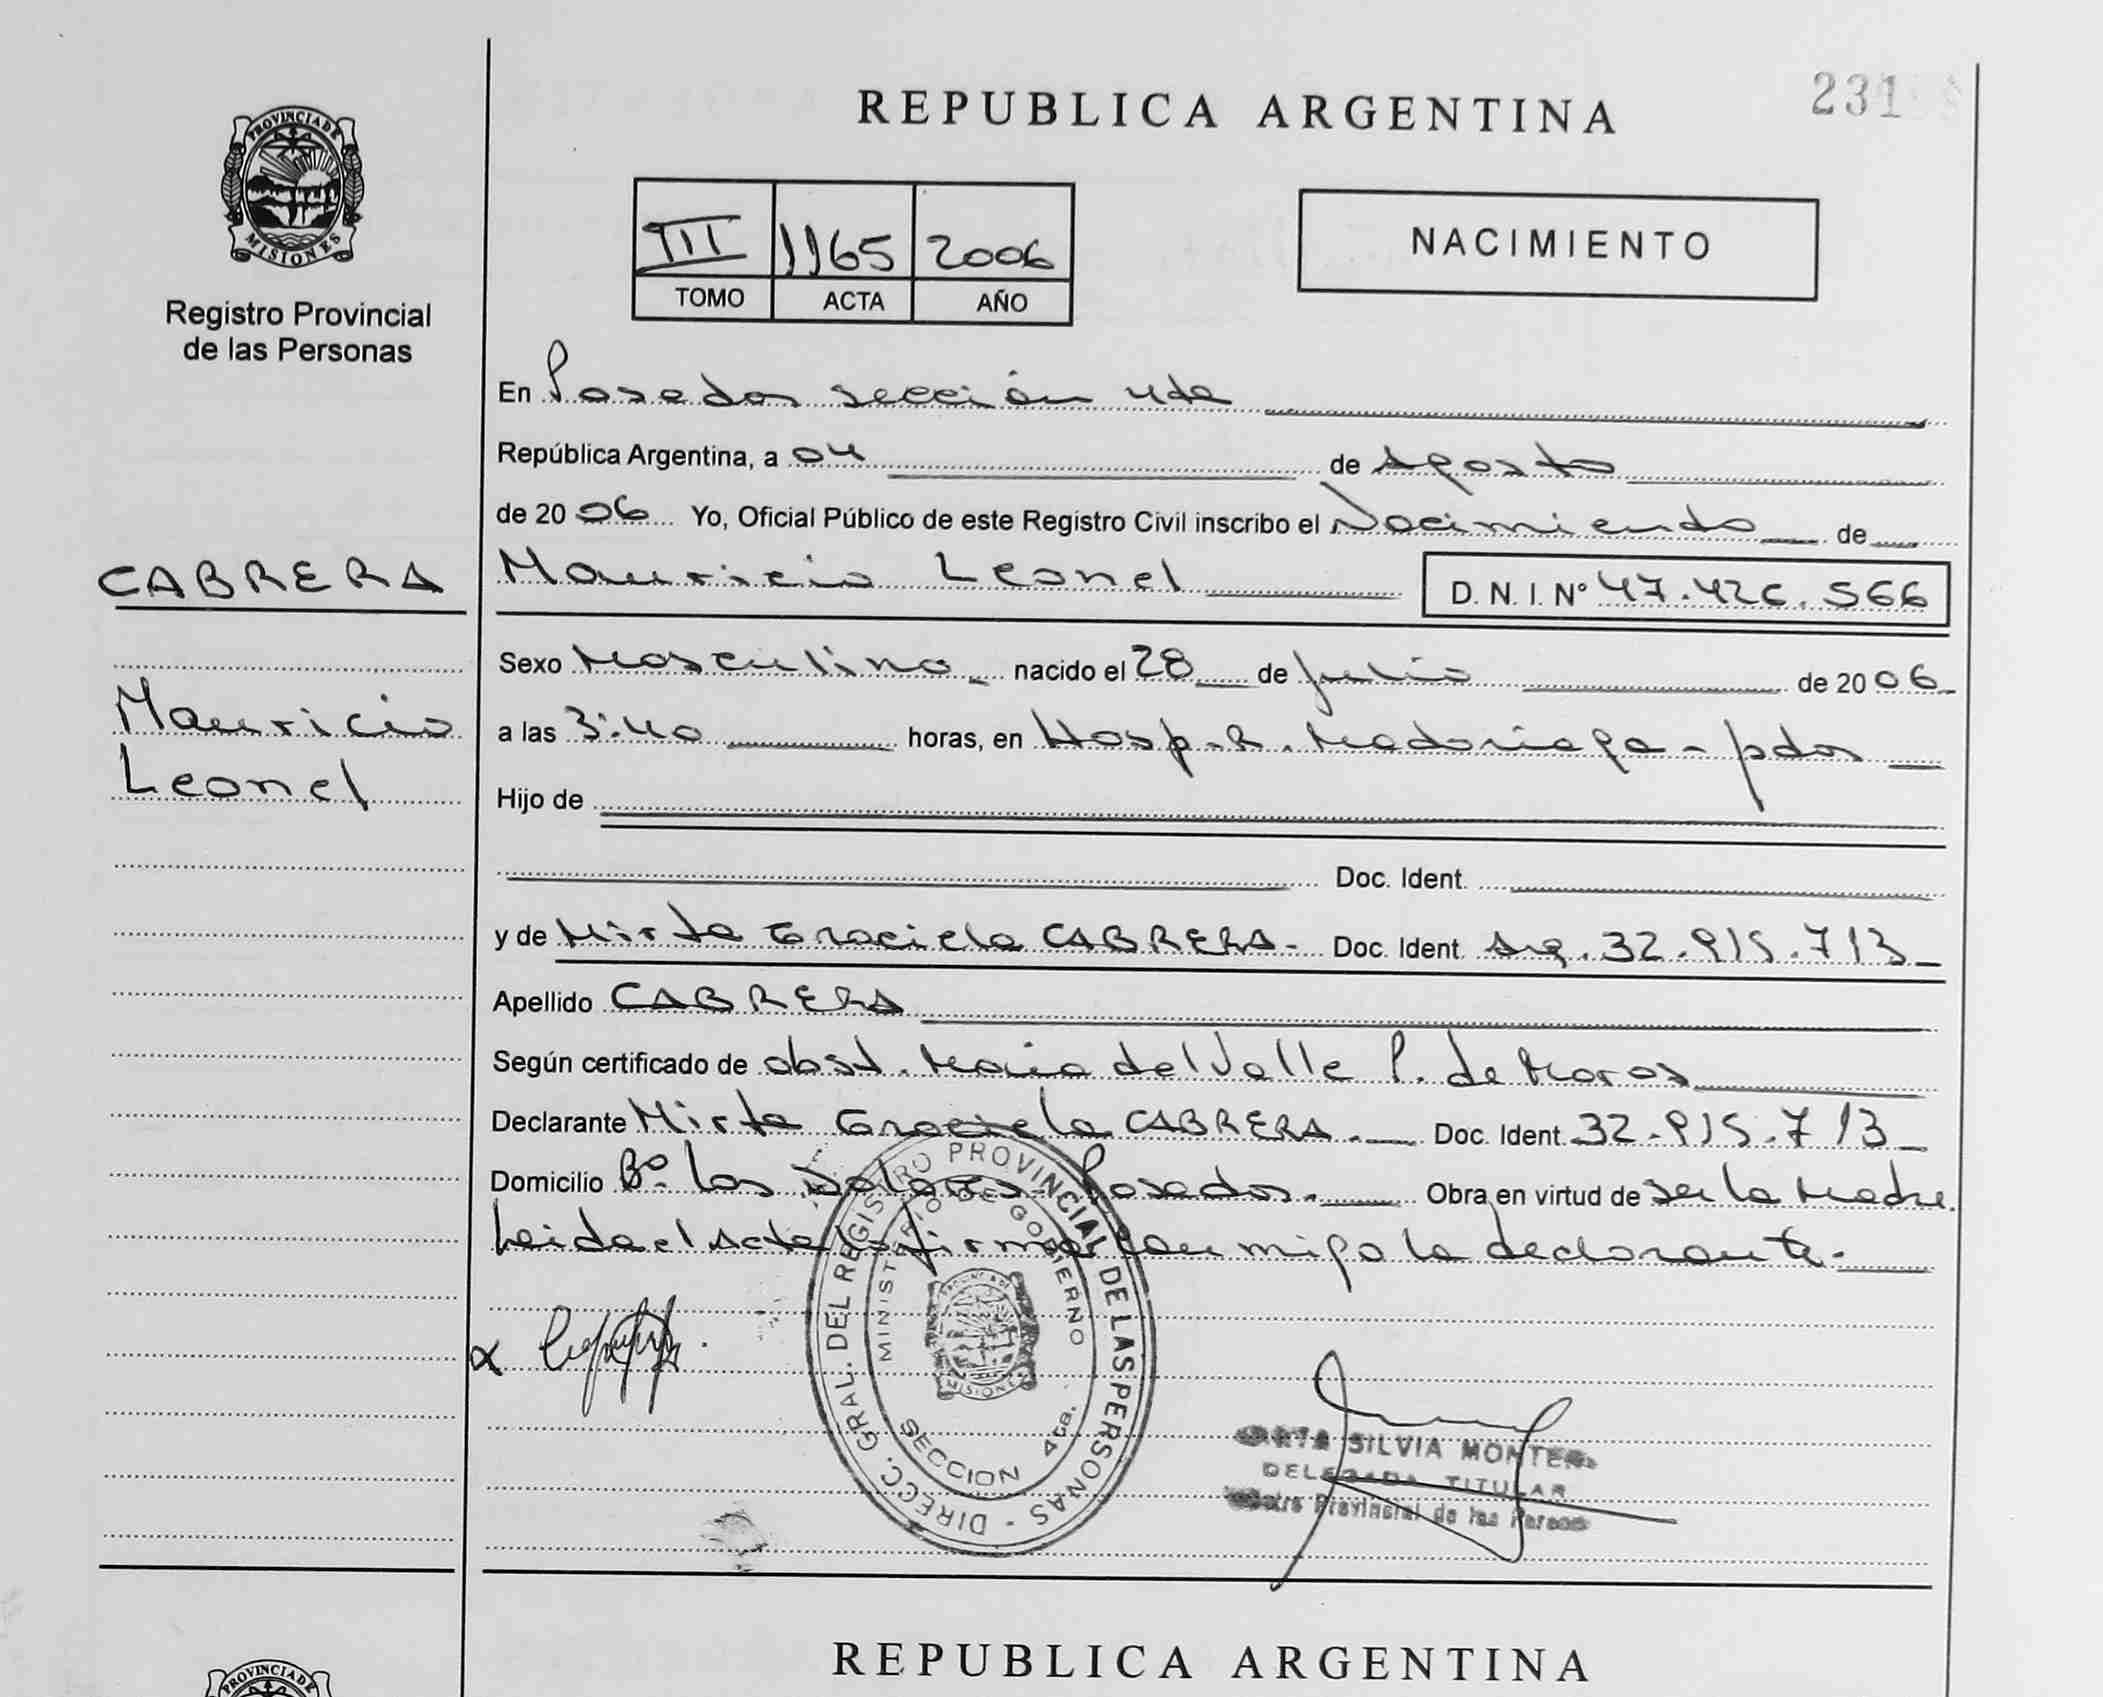 REPUBLICA ARGENTINA
231
PROVINCIA DE
MISIONES
Registro Provincial
de las Personas
III 1165 2006
TOMO ACTA AÑO
NACIMIENTO
En Posadas sección 4ta
República Argentina, a 04 de Agosto
de 2006 Yo, Oficial Público de este Registro Civil inscribo el Nacimiento de
CABRERA
Mauricio Leonel D. N. I. Nº 47.426.566
Sexo Masculino nacido el 28 de Julio de 2006
Mauricio
Leonel
a las 3:40 horas, en Hosp. R. Madariaga - pdas
Hijo de
Doc. Ident.
y de Mirta Graciela CABRERA- Doc. Ident. Arg. 32.915.713
Apellido CABRERA
Según certificado de obst. María del Valle P. de Moros
Declarante Mirta Graciela CABRERA. Doc. Ident. 32.915.713
Domicilio Bº. Los Posadas. Obra en virtud de ser la Madre.
Leida el Acta firma con migo la declarante.
DIRECC. GRAL. DEL REGISTRO PROVINCIAL DE LAS PERSONAS -
MINISTERIO DE GOBIERNO
SECCION 4ta.
PROVINCIA DE
MISIONES
SILVIA
DELEGADA TITULAR
Provincial de las
REPUBLICA ARGENTINA
PROVINCIA DE